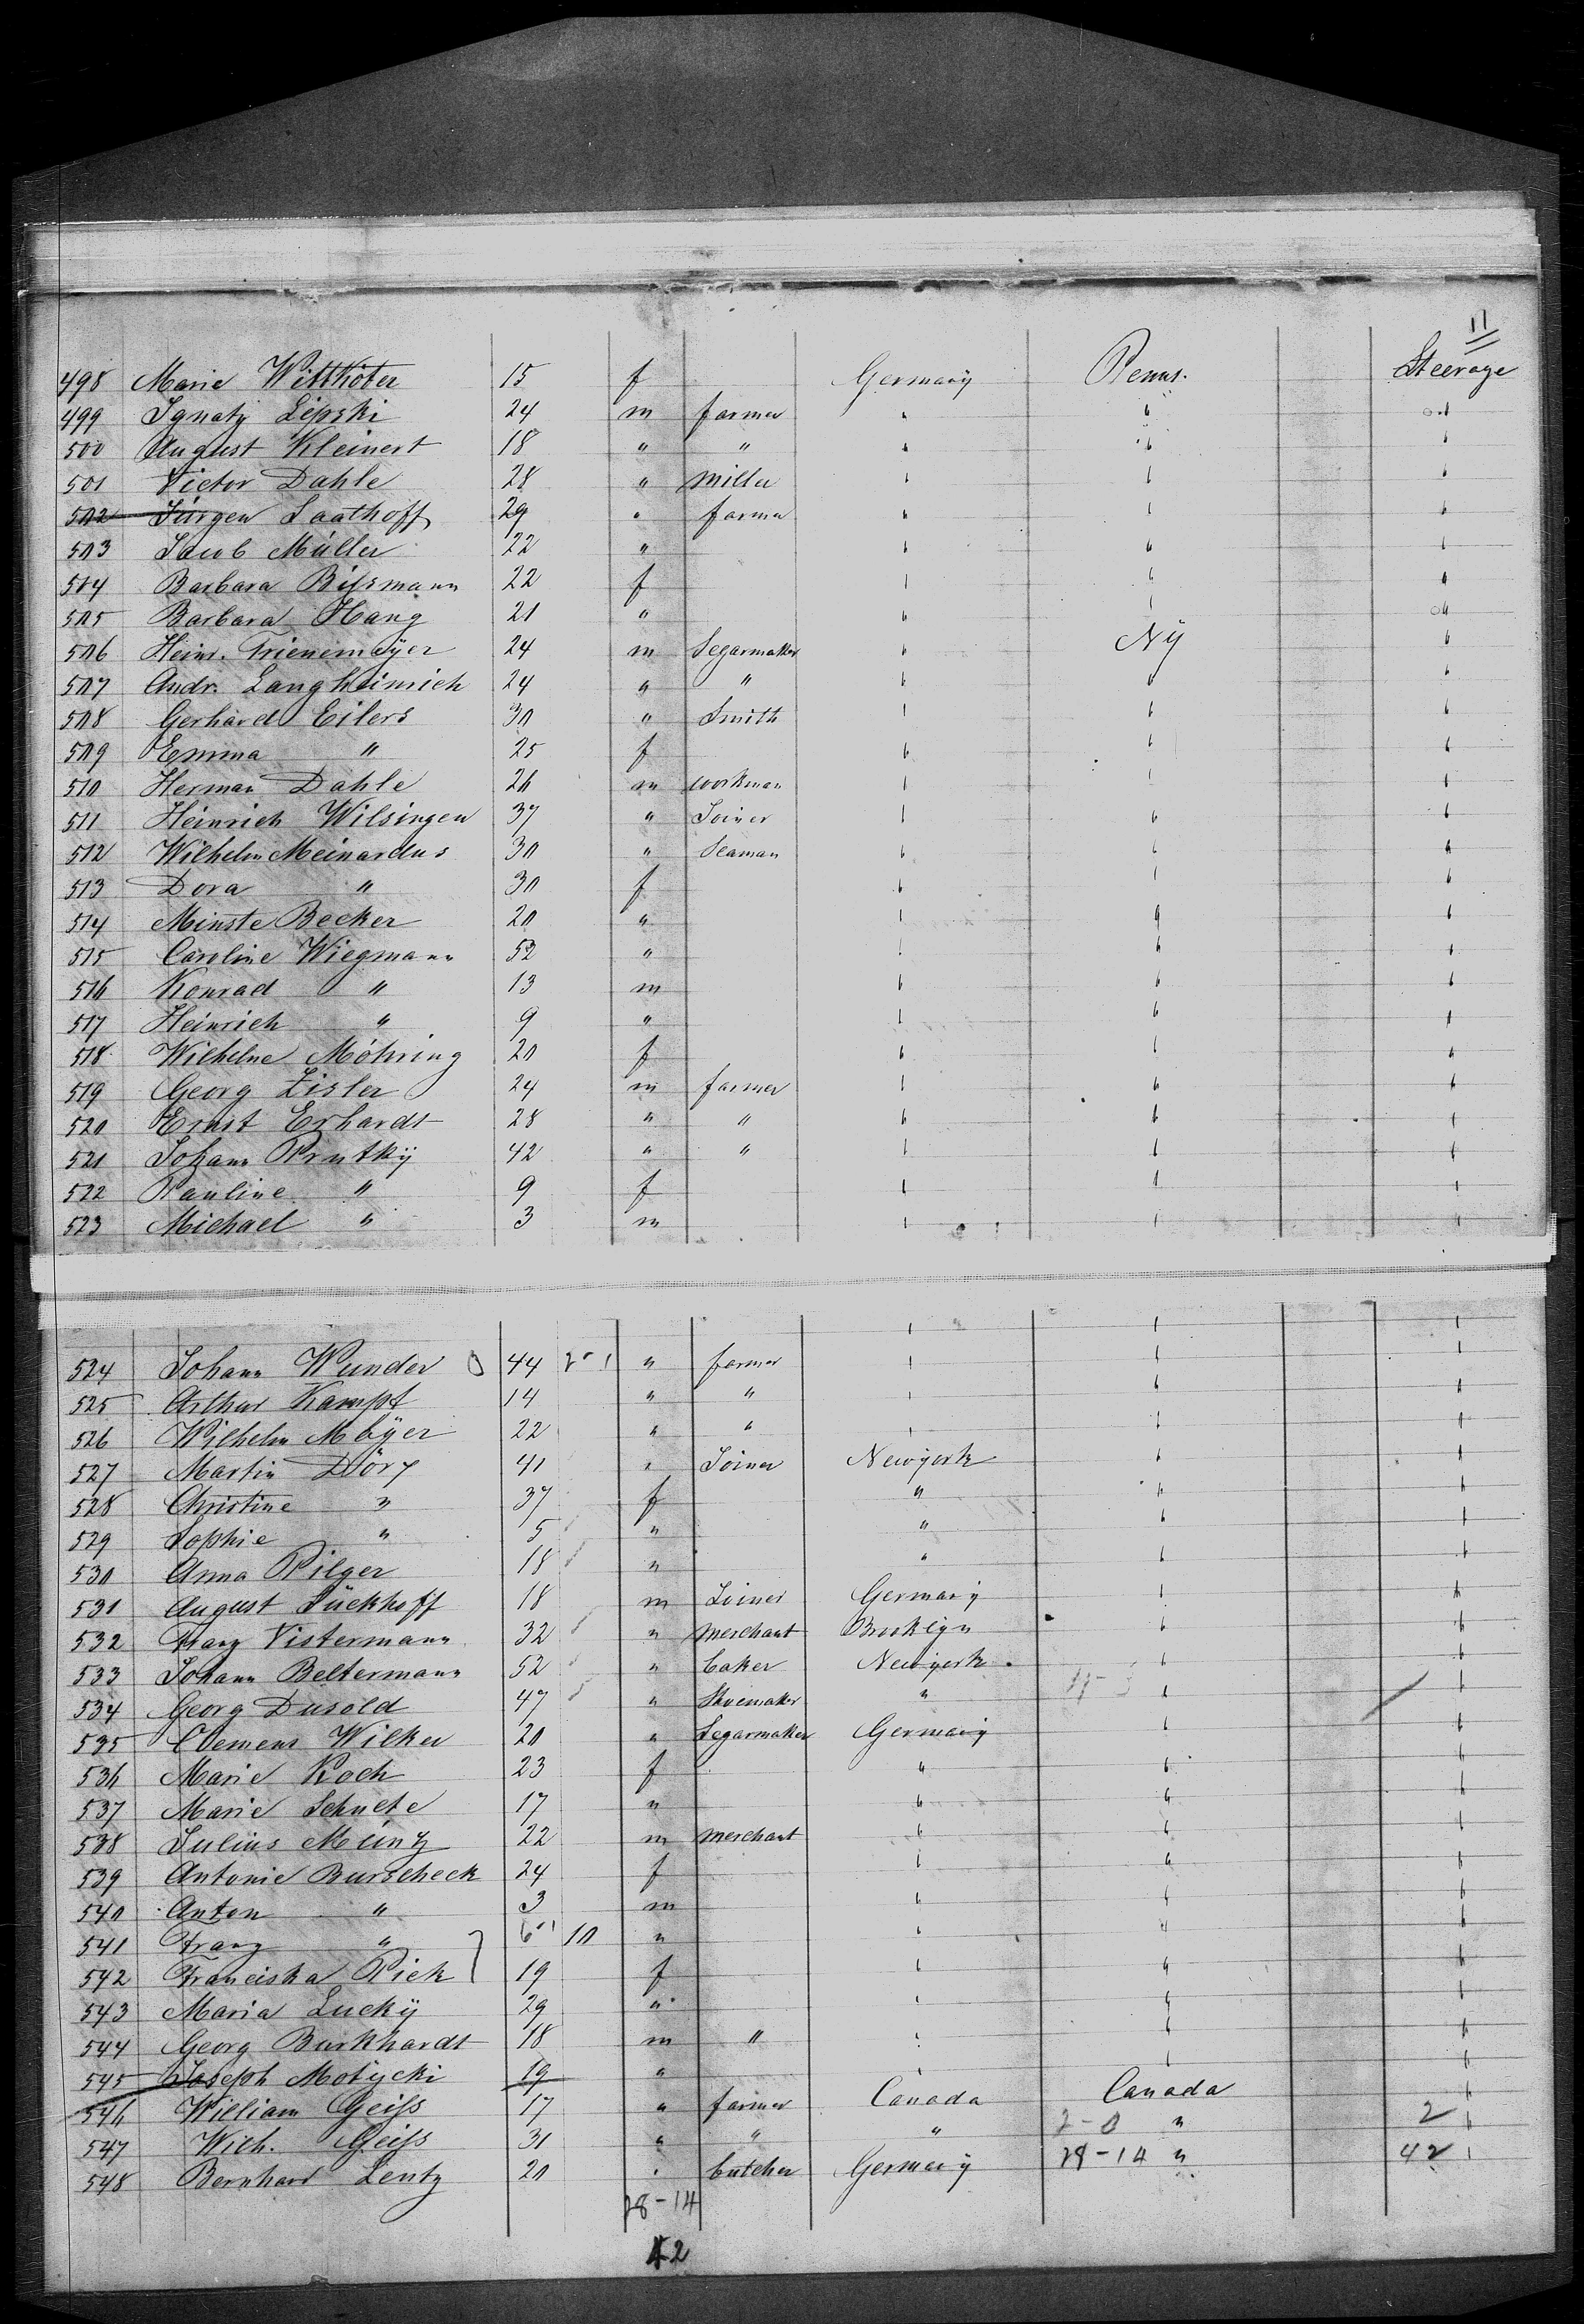 11
498 Marie Wittköter 15 f Germany Penns. Steerage
499 Ignatz Lipski 24 m farmer " " "
500 August Kleinert 18 " " " " "
501 Victor Dahle 28 " miller " " "
502 Jürgen Saathoff 29 " farmer " " "
503 Jacob Müller 22 " " " "
504 Barbara Bissmann 22 f " " "
505 Barbara Hang 21 " " " "
506 Heinr. Trienemeyer 24 m Segarmaker " Ny "
507 Andr. Langheinrich 24 " " " " "
508 Gerhard Eilers 30 " Smith " " "
509 Emma " 25 f " " "
510 Herman Dahle 26 m workman " " "
511 Heinrich Wilsingen 37 " Joiner " " "
512 Wilhelm Meinardus 30 " Seaman " " "
513 Dora " 30 f " " "
514 Minste Becker 20 " " " "
515 Caroline Wiegmann 52 " " " "
516 Konrad " 13 m " " "
517 Heinrich " 9 " " " "
518 Wilhelne Möhring 20 f " " "
519 Georg Zisler 24 m farmer " " "
520 Ernst Erhardt 28 " " " " "
521 Johann Prutky 42 " " " " "
522 Pauline " 9 f " " "
523 Michael " 3 m " " "
524 Johann Wunder 44 " farmer " " "
525 Arthur Kampf 14 " " " " "
526 Wilhelm Meyer 22 " " " " "
527 Martin Döry 41 " Joiner Newyork " "
528 Christine " 37 f " " "
529 Sophie " 5 " " " "
530 Anna Pilger 18 " " " "
531 August Lückhoff 18 m Joiner Germany " "
532 Franz Vistermann 32 " merchant Brooklyn " "
533 Johann Beltermann 52 " baker Newyork " "
534 Georg Dusold 47 " Shoemaker " " "
535 Clemens Wilker 20 " Segarmaker Germany " "
536 Marie Koch 23 f " " "
537 Marie Schuete 17 " " " "
538 Julius Müntz 22 m merchant " " "
539 Antonie Burscheck 24 f " " "
540 Anton " 3 m " " "
541 Franz " 10 " " " "
542 Franciska Pick 19 f " " "
543 Maria Lucky 29 " " " "
544 Georg Burkhardt 18 m " " " "
545 Joseph Motycki 19 " " " "
546 William Geiss 17 " farmer Canada Canada "
547 Wilh. Geiss 31 " " " 2-0 " 2 "
548 Bernhard Lentz 20 " butcher Germany 28-14 " 42 "
28-14
42